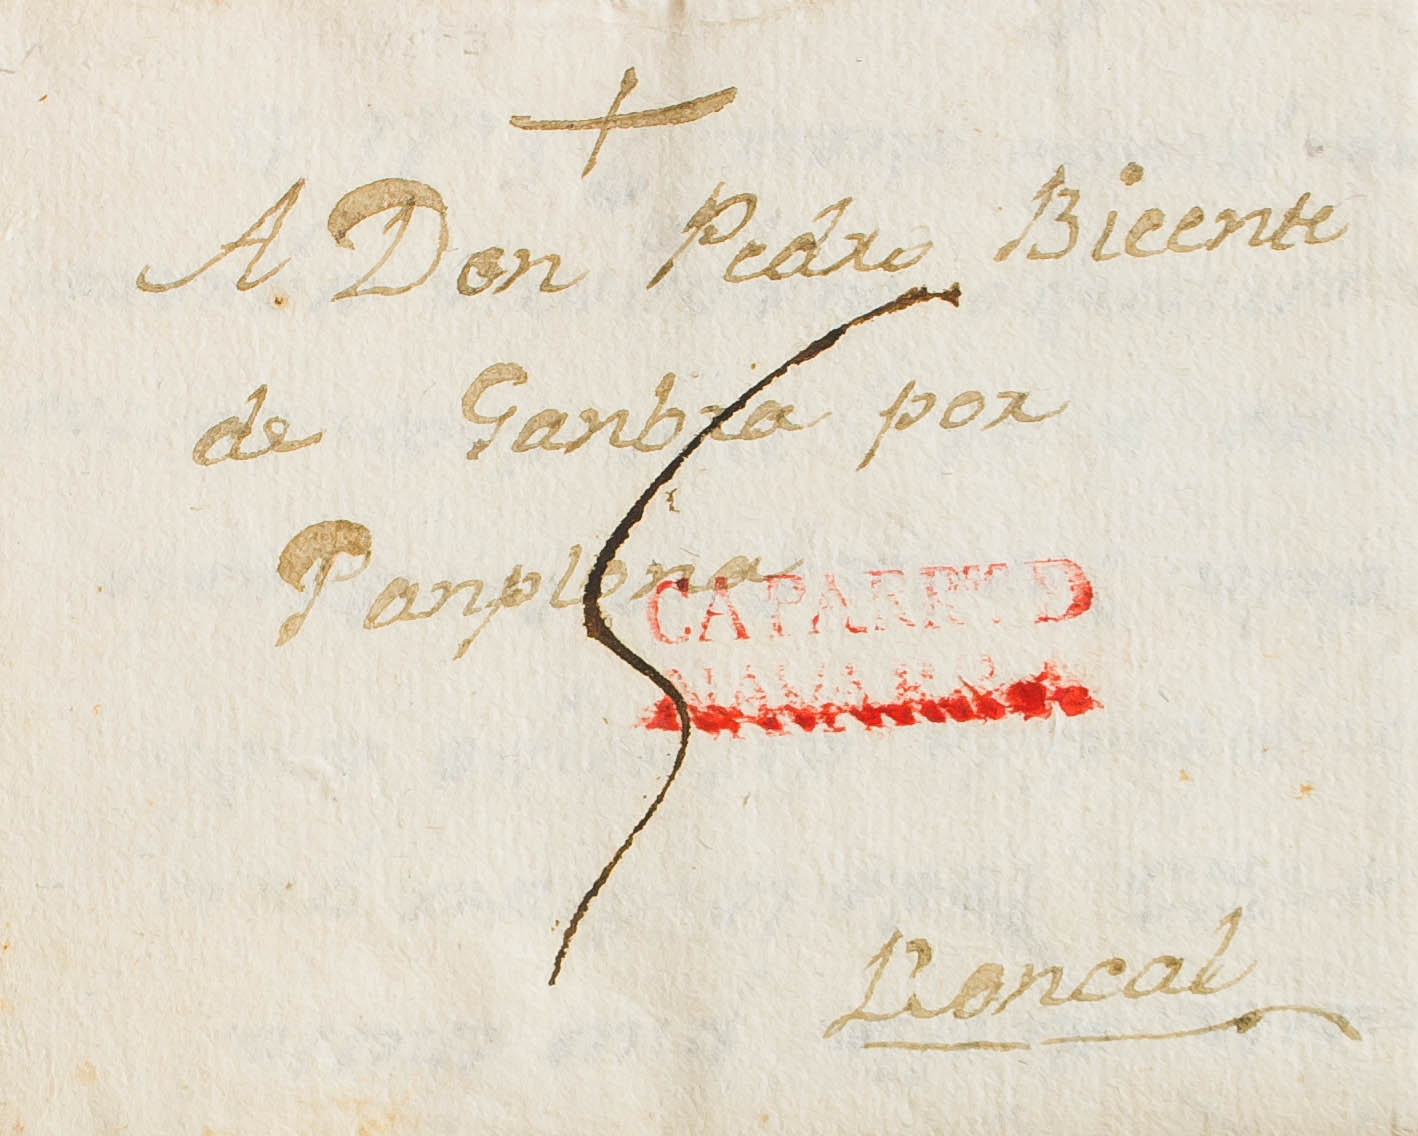 A. Don Pedro Bicente
de Ganbra por
Panplona
CAPARROD
NAVARRA
Roncal